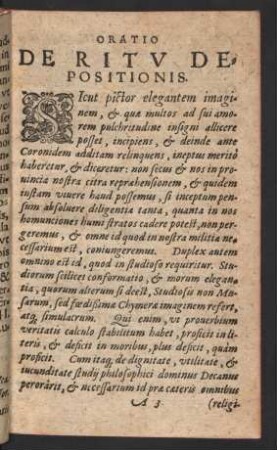 ORATIO
DE RITV DE-
POSITIONIS.
Sicut pictor elegantem imagi-
nem, & quæ multos ad sui amo-
rem pulchritudine insigni allicere
posset, incipiens, & deinde ante
Coronidem additam relinquens, ineptus meritò
haberetur, & diceretur: non secus & nos in pro-
uincia nostra citra reprehensionem, & quidem
iustam viuere haud possemus, si inceptum pen-
sum absoluere diligentia tanta, quanta in nos
homunciones humi stratos cadere potest, non per-
geremus, & omne id quod in nostra militia ne-
cessarium est, coniungeremus. Duplex autem
omnino est id, quod in studioso requiritur. Stu-
diorum scilicet conformatio, & morum elegan-
tia, quorum alterum si deest, Studiosus non Mu-
sarum, sed fœdissimæ Chymeræ imaginem refert,
atq; simulacrum. Qui enim, vt prouerbium
veritatis calculo stabilitum habet, proficit in li-
teris, & deficit in moribus, plus deficit, quàm
proficit. Cum itaq; de dignitate, vtilitate, &
iucunditate studij philosophici dominus Decanus
perorârit, & necessarium id præ cæteris omnibus
A 3 (religi-